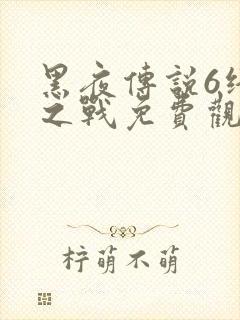 黑夜傳說6
之戰免費觀
柠萌不萌